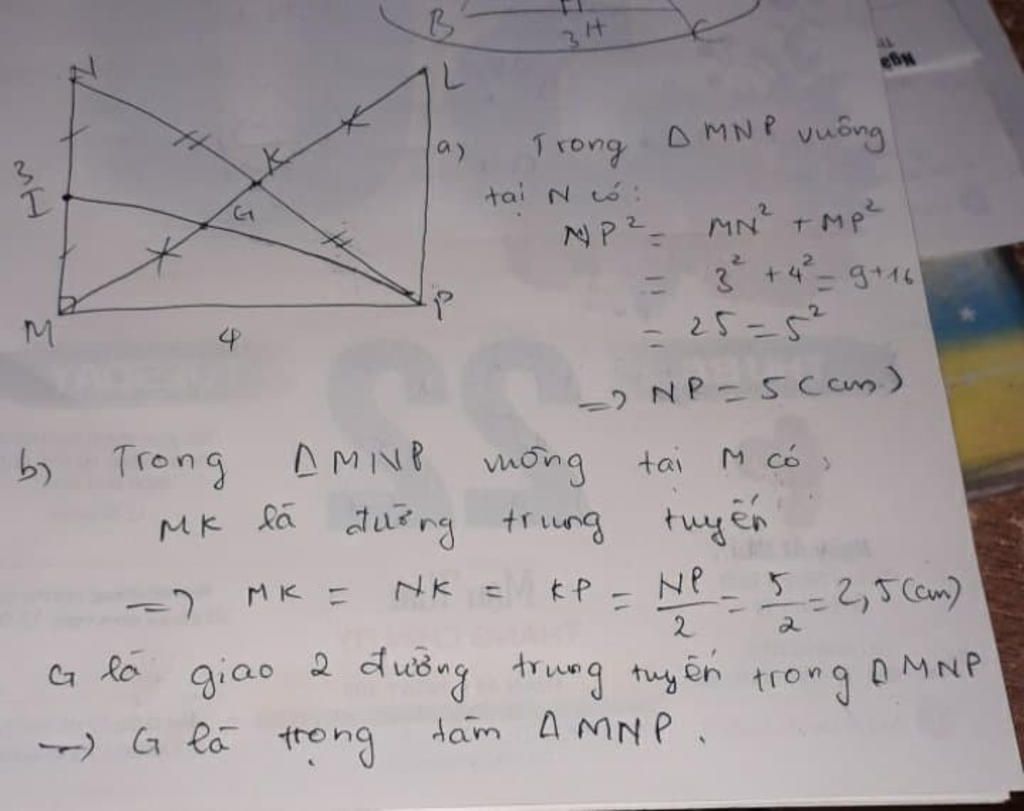 B
3 H
C
Ngà
N
L
3
I
K
G
M
4
P
a) Trong Δ MNP vuông
tại N có:
NP² = MN² + MP²
= 3² + 4² = 9+16
= 25 = 5²
=> NP = 5 (cm)
b) Trong Δ MNP vuông tại M có,
MK là đường trung tuyến
=> MK = NK = KP = NP/2 = 5/2 = 2,5 (cm)
G là giao 2 đường trung tuyến trong Δ MNP
=> G là trọng tâm Δ MNP.
22